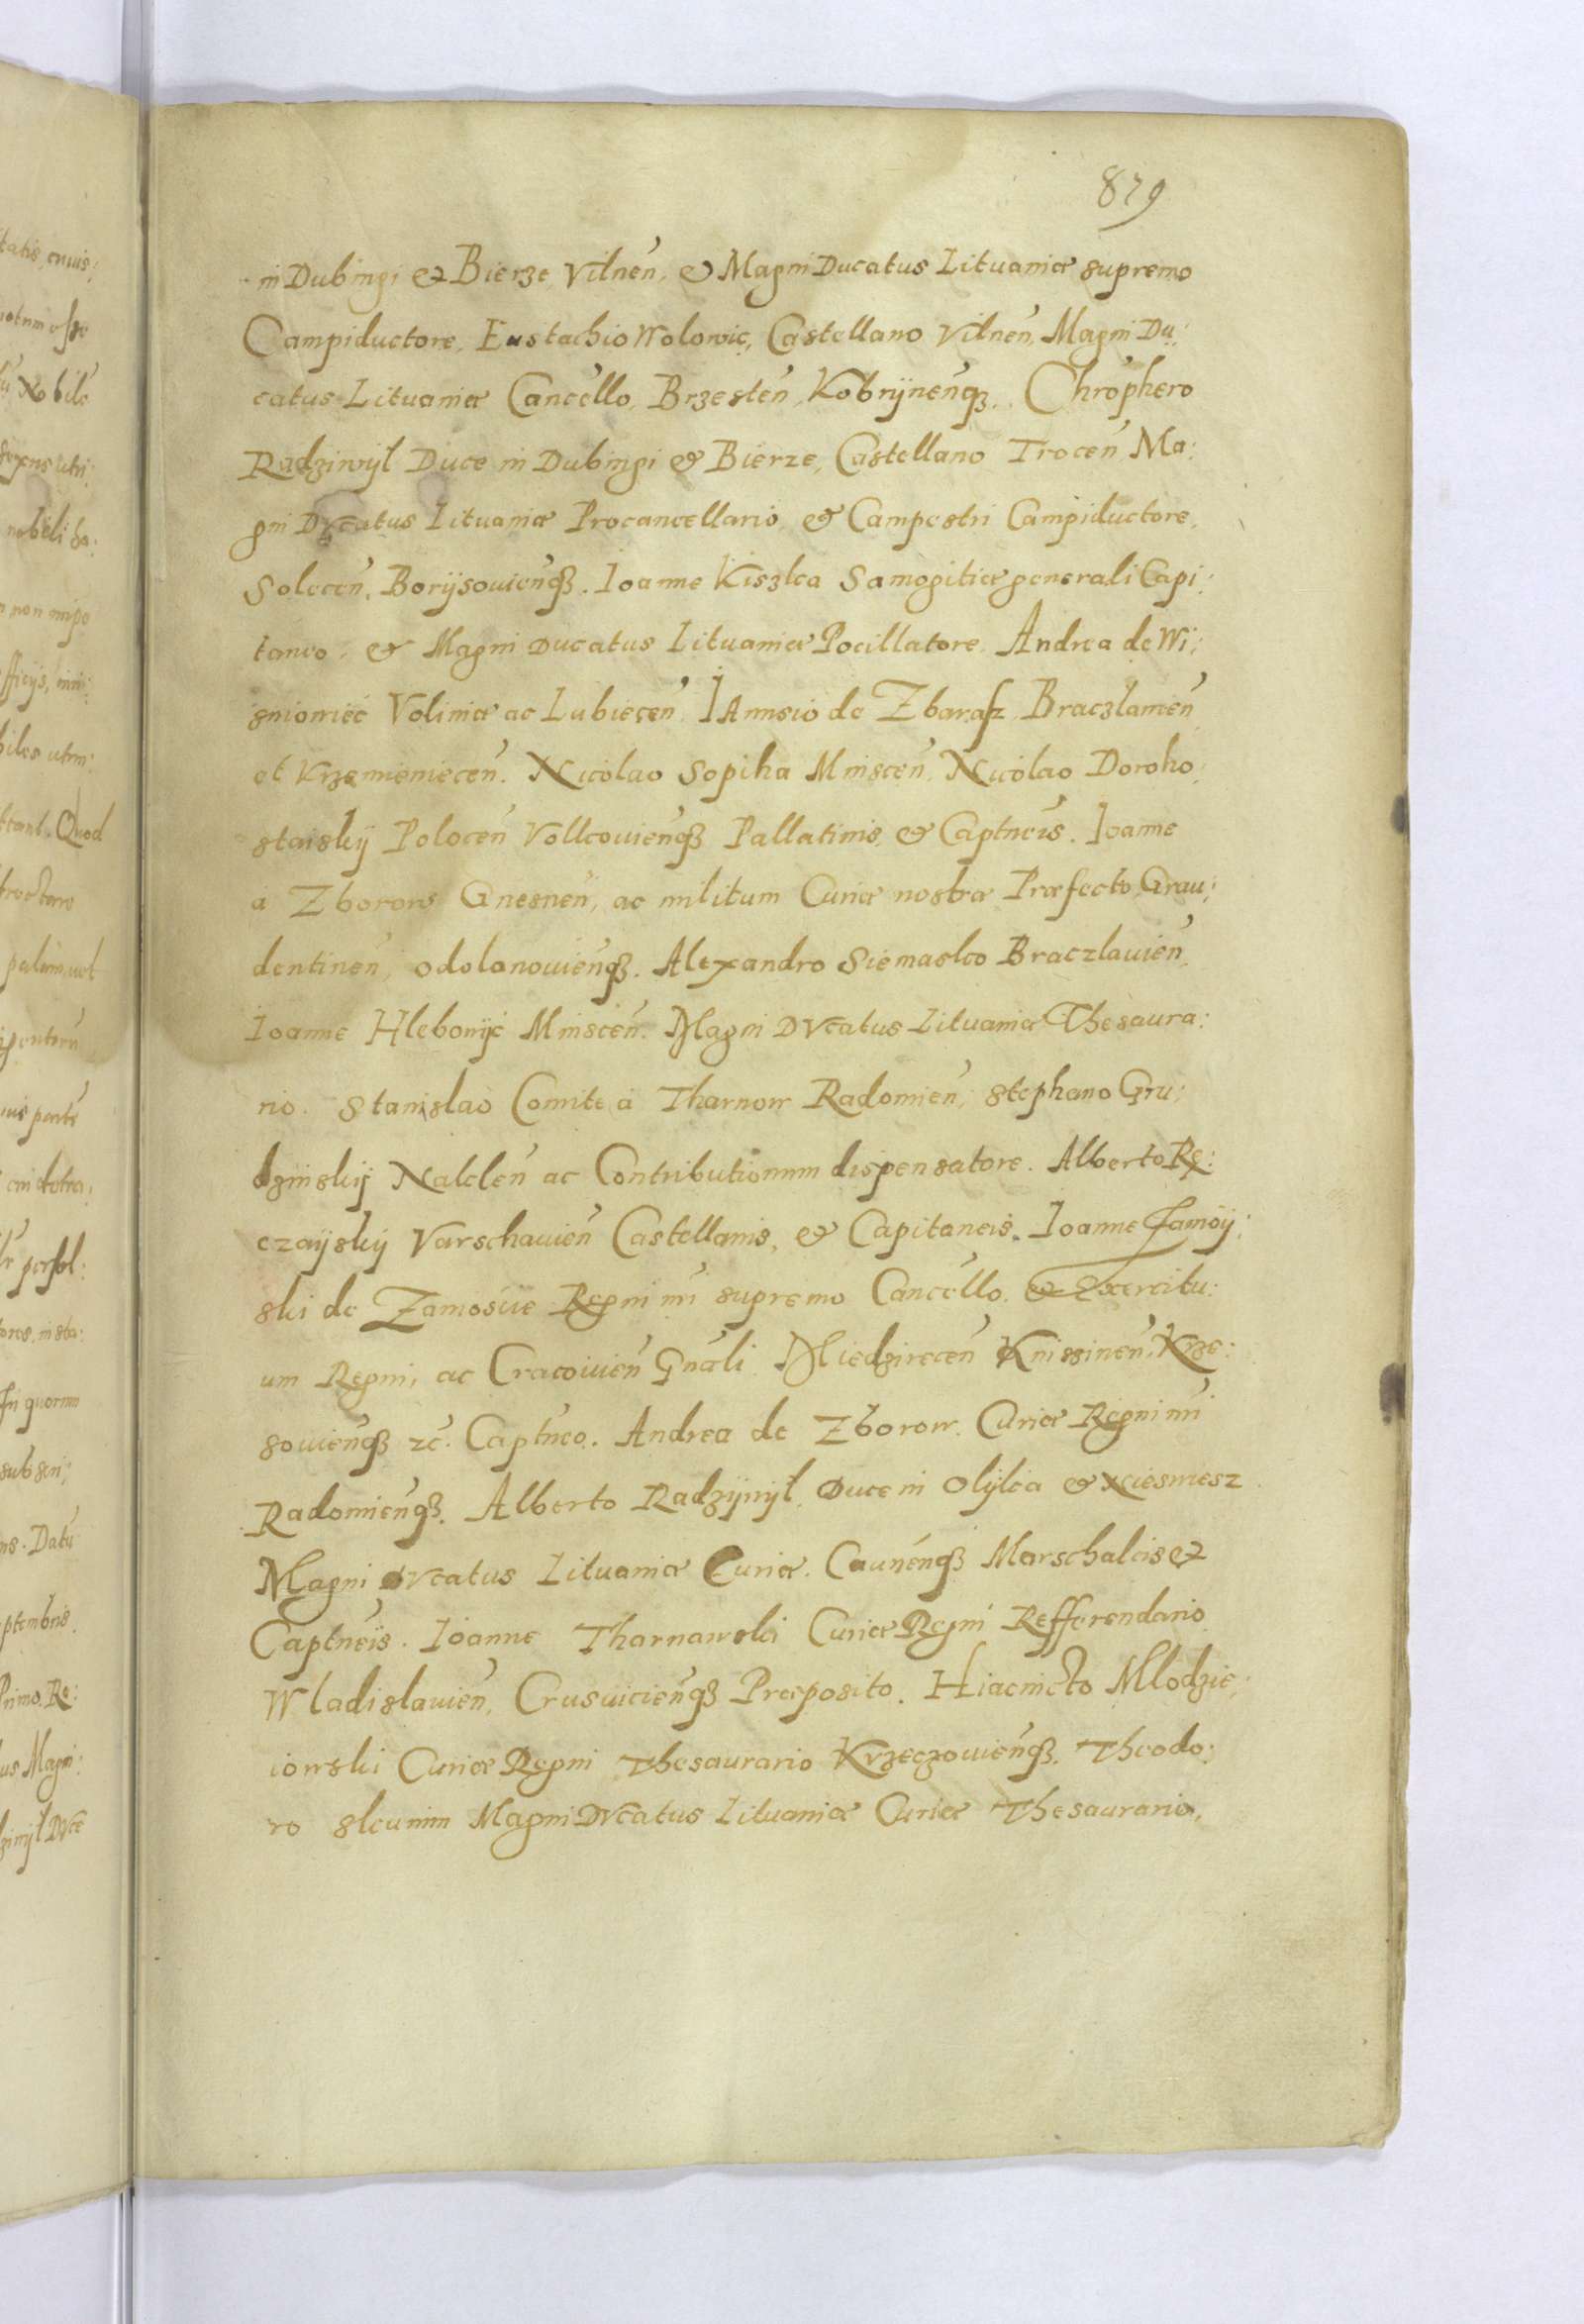 879
in Dubingi et Bierze, Vilnen̄, et Magni Ducatus Lituaniæ supremo
Campiductore, Eustachio Wolowic, Castellano Vilnen̄, Magni Du:
catus Lituaniæ Cancello, Brzesten̄, Kobrijnenq₃. Chrophero
Radziwyl Duce in Dubingi et Bierze, Castellano Trocen̄ Ma:
gni Ducatus Lituaniæ Procancellario, et Campestri Campiductore,
Solecen̄, Borijsovienq₃. Ioanne Kiszka Samogitiæ generali Capi:
taneo, et Magni Ducatus Lituaniæ Pocillatore. Andrea de Wi:
sniowiec Voliniæ ac Lubiecen̄. IAnusio de Zbarasz Braczlawien̄
et Krzemieniecen̄. Nicolao Sopiha Minscen̄, Nicolao Doroho:
staiskij Polocen̄ Volkovienq₃ Pallatinis, et Captneis. Ioanne
a Zborow Gnesnen̄, ac militum Curiæ nostræ Præfecto, Grau:
dentinen̄, odolanovienq₃. Alexandro Siemasko Braczlavien̄,
Ioanne Hlebowijc Minscen̄. Magni Ducatus Lituaniæ Thesaura:
rio. Stanislao Comite a Tharnow Radomien̄, Stephano Gru:
dzinskij Naklen̄ ac Contributionum dispensatore. Alberto Re:
czaijskij Varschavien̄ Castellanis, et Capitaneis. Ioanne Zamoij:
ski de Zamoscie Regni nri supremo Cancello. et Exercitu:
um Regni, ac Cracovien̄ Gnāli Miedzirecen̄ Knissinen̄, Krze:
sovienq₃ zc̄. Captneo. Andrea de Zborow. Curiæ Regni nri
Radomienq₃. Alberto Radzijwyl, Duce in Olijka et xciesniesz
Magni Ducatus Lituaniæ Curiæ. Caunenq₃ Marschalcis et
Captneis. Ioanne Tharnawski Curiæ Regni Refferendario
Wladislavien̄, Crusvicienq₃ Præposito. Hiacincto Mlodzie:
iowski Curiæ Regni Thesaurario Krzeczovienq₃. Theodo:
ro skumin Magni Ducatus Lituaniæ Curiæ Thesaurario,